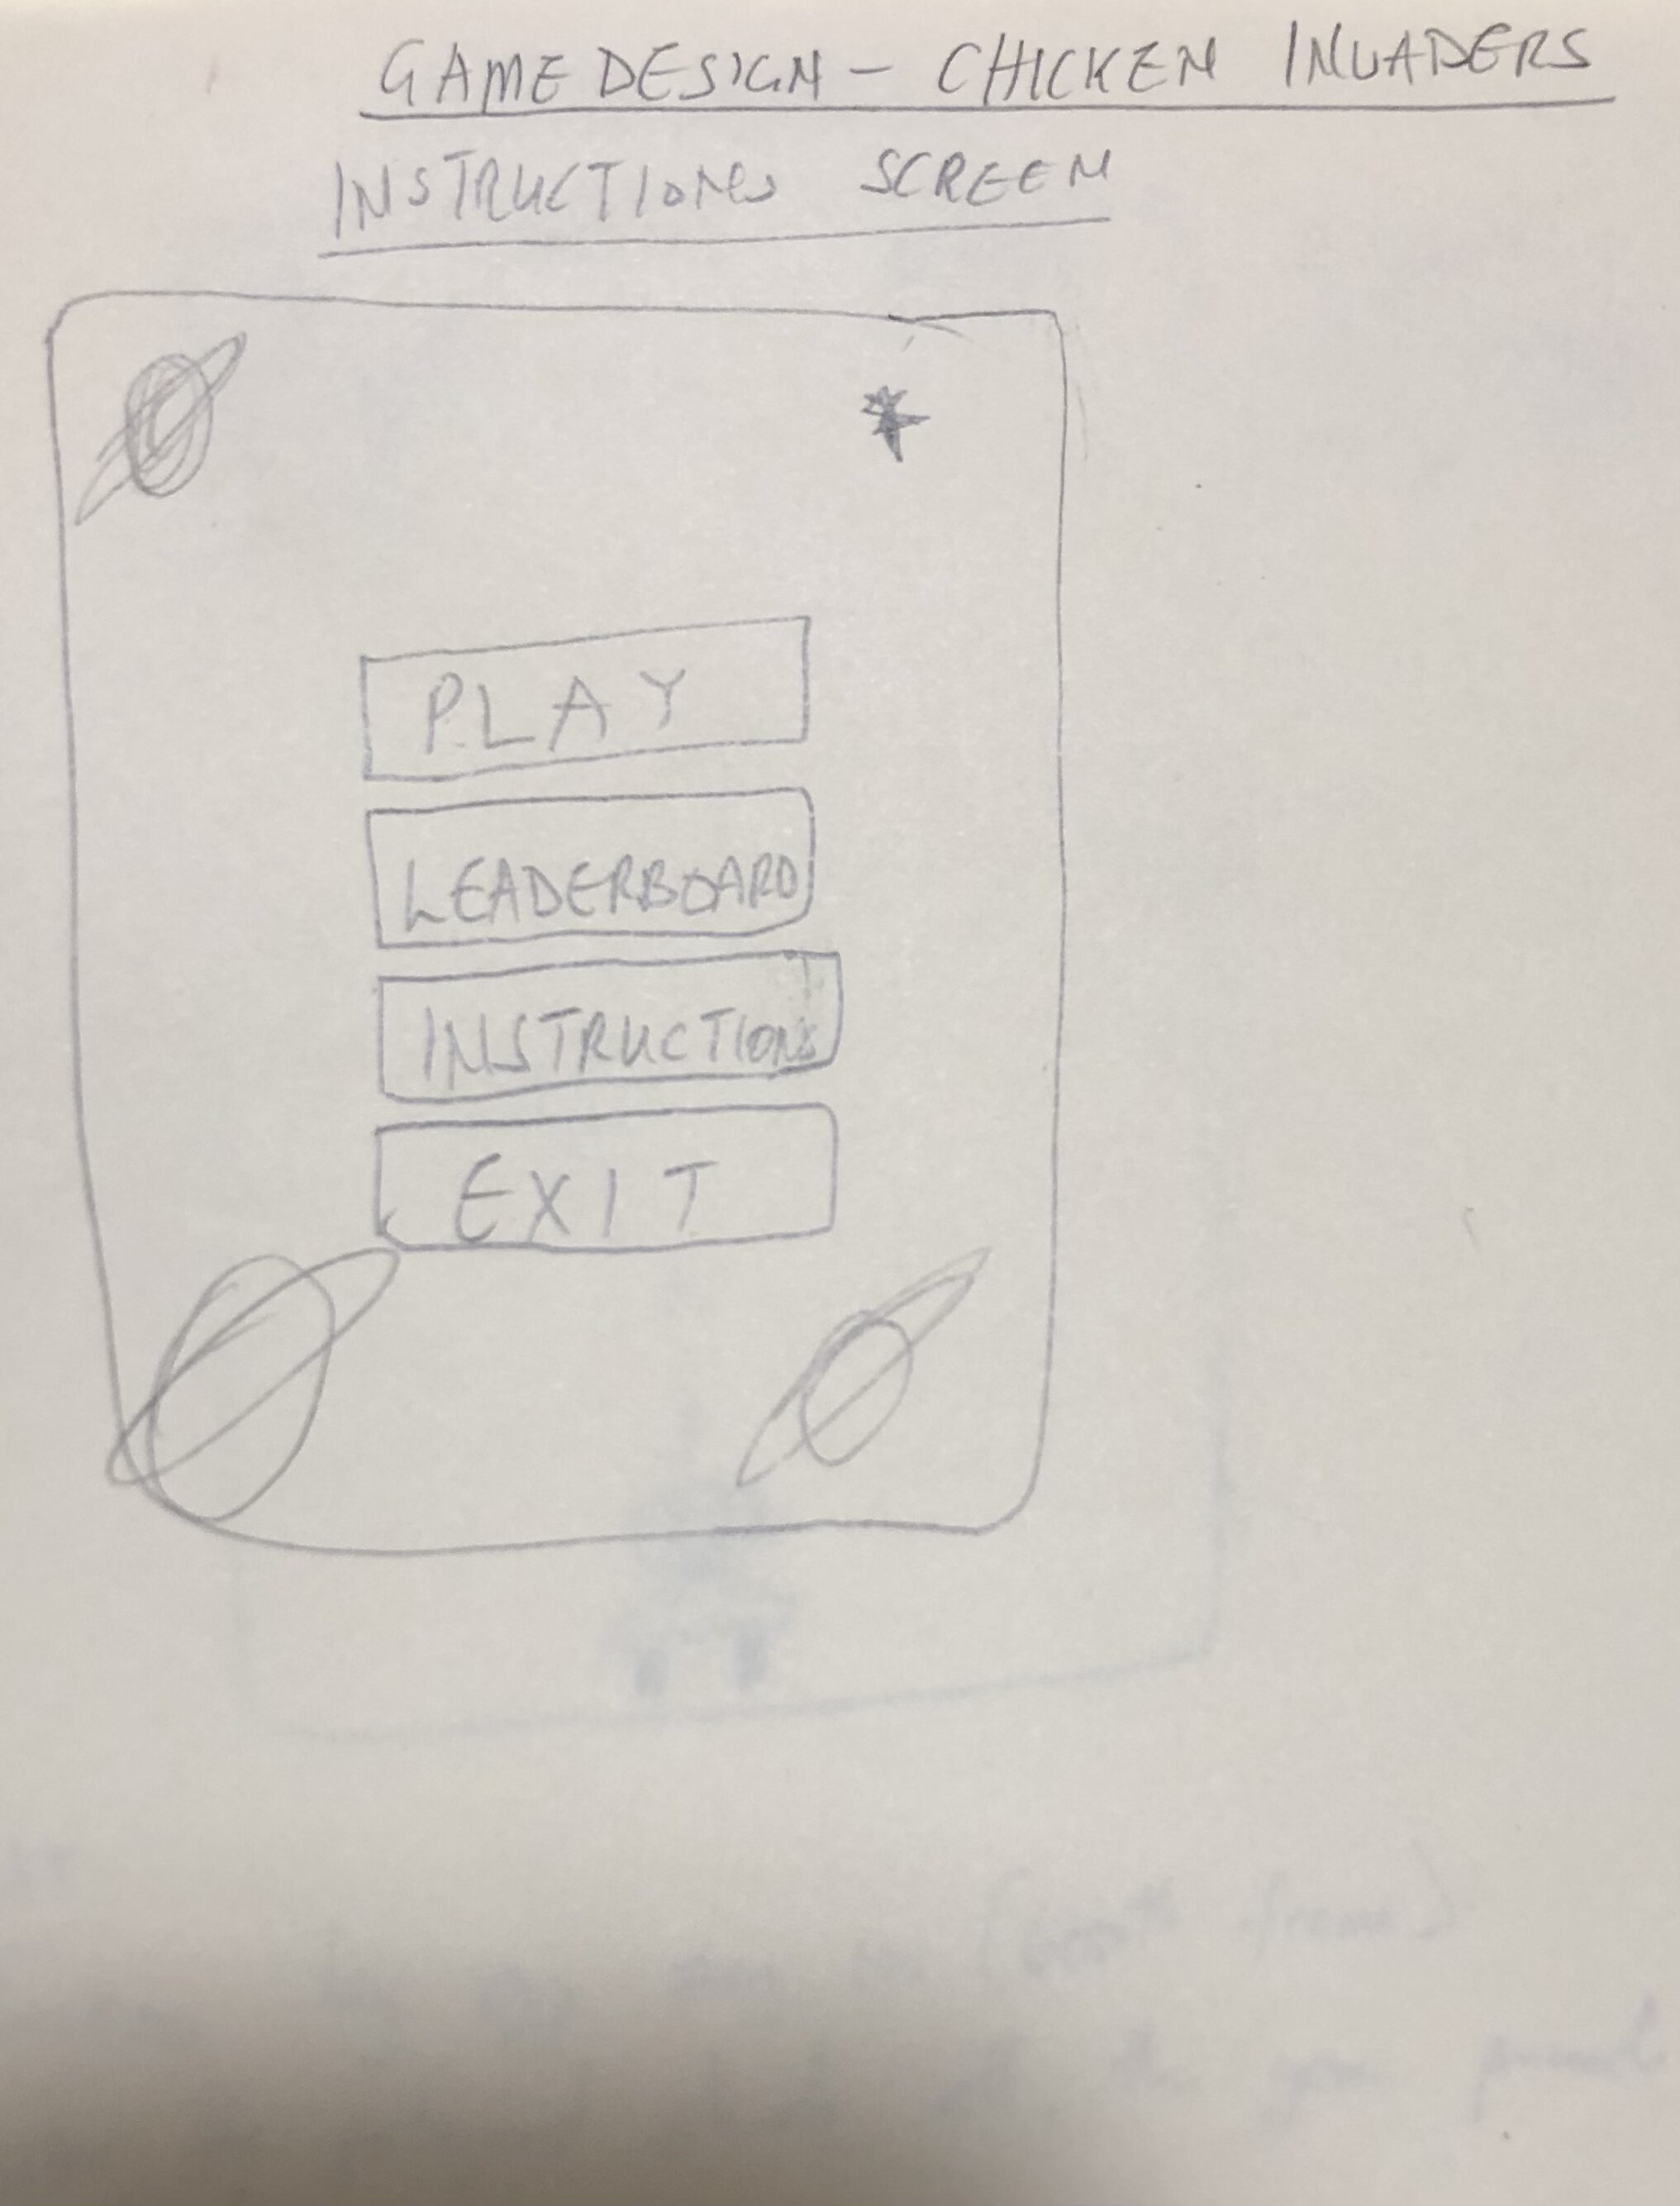 GAME DESIGN - CHICKEN INVADERS
INSTRUCTIONS SCREEN
PLAY
LEADERBOARD
INSTRUCTIONS
EXIT